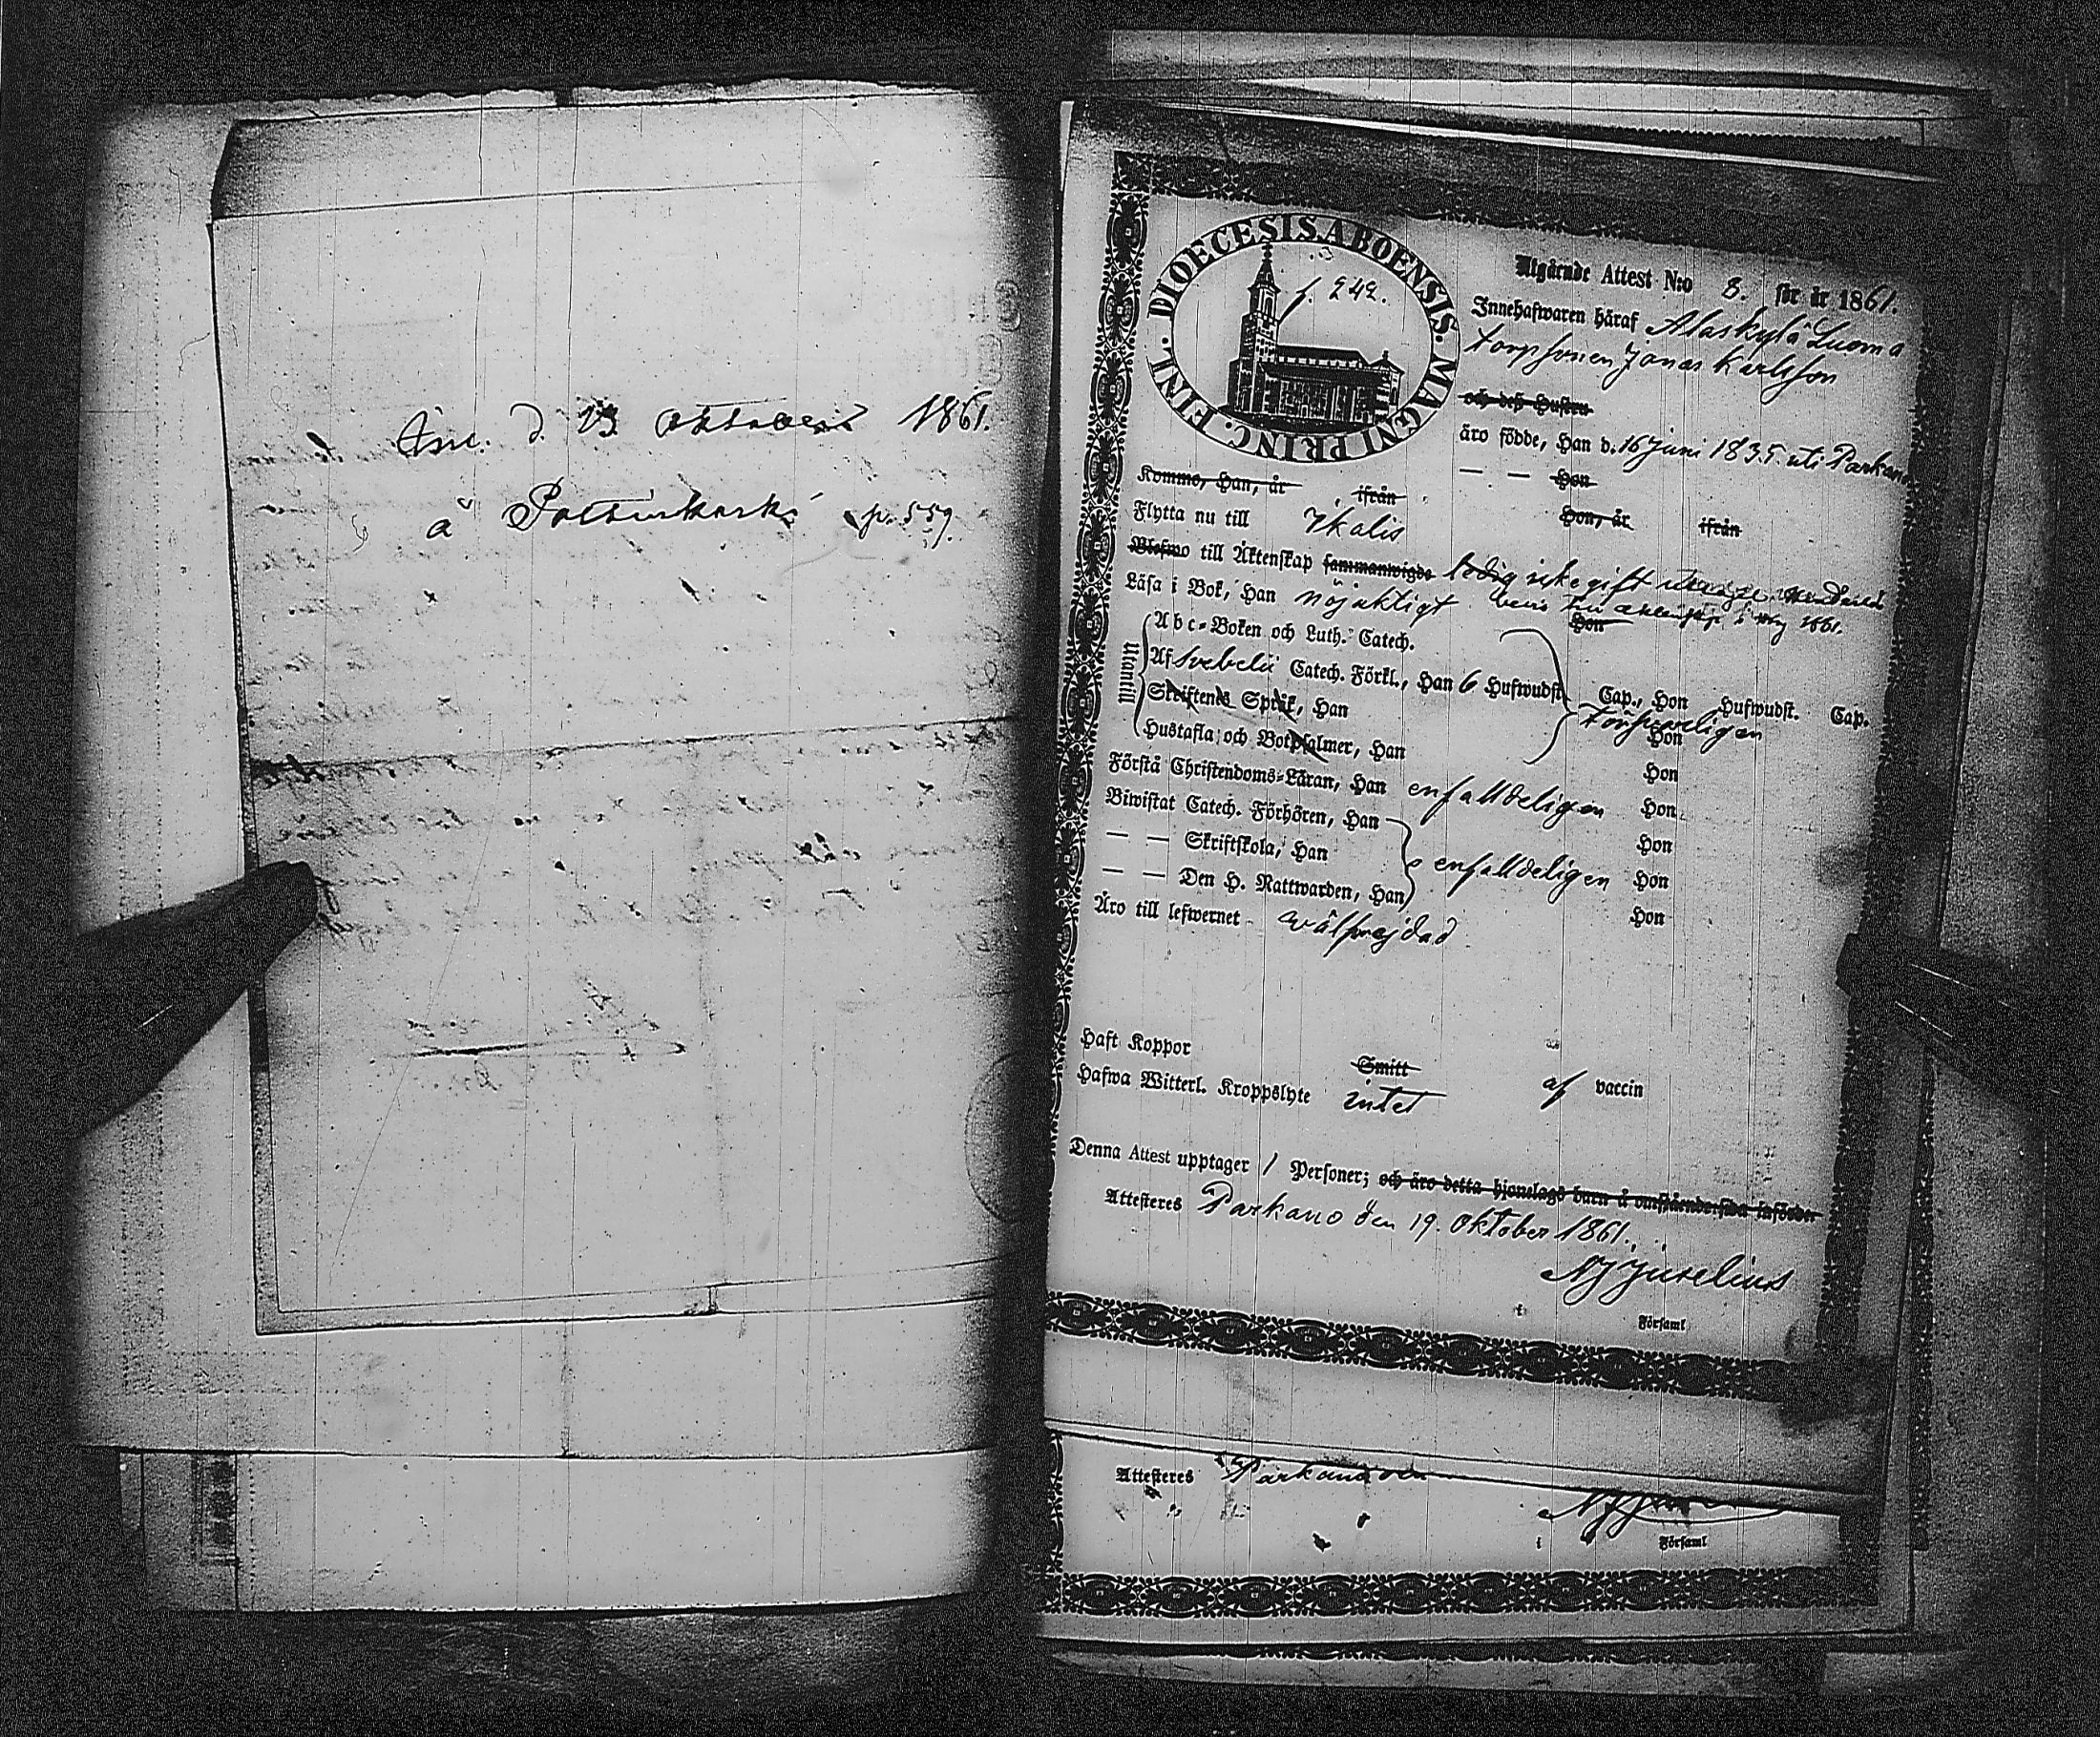 Anl. d. 23 Oktober 1861.
à p. 559.
DIOECESIS ABOENSIS. MAGNI PRINC. FINL.
f. 242.
Afgående Attest N:o 8. för år 1861.
Innehafwaren häraf Alaskylä Luoma
torpsonen Jonas Karlsson
och deß Hustru
äro födde, Han d. 16 Juni 1835. uti Parkano
— — Hon
Kommo, Han, år , ifrån Hon, år ifrån
Flytta nu till Ikalis
Blefwo till Äktenskap sammanwigde ledig icke gift
Läsa i Bok, Han nöjaktigt Hon i Maj 1861.
Utantill
Abc-Boken och Luth. Catech.
Af Svebelii Catech. Förkl., Han 6 Hufwudst. Cap., Hon Hufwudst. Cap.
Skriftens Språk, Han Hon
Hustafla, och Botpsalmer, Han Hon
Förstå Christendoms-Läran, Han enfalldeligen Hon
Biwistat Catech. Förhören, Han Hon
— — Skriftskola, Han enfalldeligen Hon
— — Den H. Nattwarden, Han Hon
Äro till lefwernet wälfrejdad
Haft Koppor Smitt af vaccin
Hafwa Witterl. Kroppslyte intet
Denna Attest upptager 1 Personer; och äro detta hjonelags barn å omstående sida införde
Attesteres Parkano den 19. Oktober 1861.
i Församl
Attesteres Parkano den
i Församl